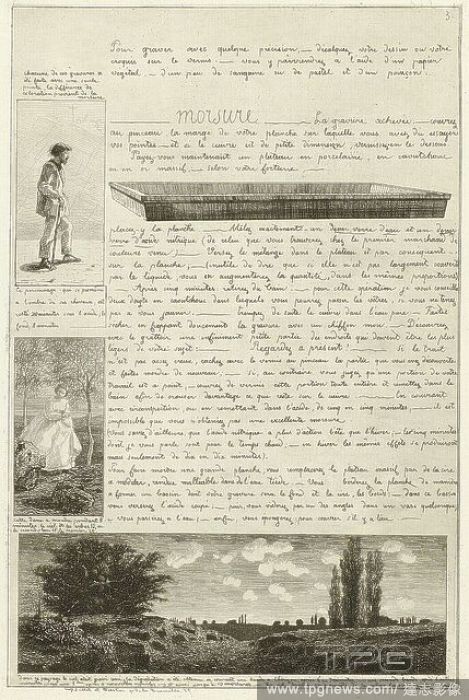 3
Pour graver avec quelque précision, — décalquez votre dessin ou votre
croquis sur le vernis. — vous y parviendrez à l'aide d'un papier
végétal — d'un peu de sanguine ou de pastel et d'un poinçon.
chacune de ces gravures a
été faite avec une seule
pointe, la différence de
coloration provient de la
morsure
MORSURE — La gravure achevée — couvrez
au pinceau la marge de votre planche sur laquelle vous avez dû essayer
vos pointes — et si le cuivre est de petite dimension, vernissez-en le dessous
Payez-vous maintenant un plateau en porcelaine, en caoutchouc
ou en or massif, — selon votre fortune —
placez-y la planche — Mêlez exactement un demi verre d'eau et un demi
verre d'acide nitrique (de celui que vous trouverez chez le premier marchand de
couleurs venu) — Versez le mélange dans le plateau et par conséquent
sur la planche, (inutile de dire que si elle n'est pas largement couverte
par le liquide, vous en augmenterez la quantité, dans les mêmes proportions)
Après cinq minutes retirez du bain — pour cette opération, je vous conseille
deux doigts en caoutchouc dans lesquels vous pourrez passer les vôtres, si vous ne tenez
pas à vous jaunir. — trempez de suite le cuivre dans l'eau pure — Faites
sécher en frappant doucement la gravure avec un chiffon mou — Découvrez
avec le grattoir une infiniment petite partie des endroits que doivent être les plus
légers de votre sujet — Regardez à présent! — Si le trait
n'est pas assez creusé, cachez avec le vernis au pinceau la partie que vous avez découverte
et faites mordre de nouveau — Si, au contraire vous jugez qu'une portion de votre
travail est à point, couvrez de vernis cette portion toute entière et remettez dans le
bain afin de creuser davantage ce que reste sur le cuivre — En couvrant
avec circonspection, ou en remettant dans l'acide de cinq en cinq minutes, — il est
impossible que vous n'obteniez pas une excellente morsure
Vous savez d'ailleurs que l'acide nitrique a plus d'action l'été que l'hiver; les cinq minutes
dont je vous parle sont pour le temps chaud, — en hiver les mêmes effets se produiront
mais seulement de dix en dix minutes).
Pour faire mordre une grande planche, vous remplacerez le plateau massif par de la cire
à modeler, rendue malléable dans de l'eau tiède — Vous borderez la planche de manière
à former un bassin dont votre gravure sera le fond et la cire, les bords — dans ce bassin
vous verserez l'acide coupé — puis, vous viderez par un des angles dans un vase quelconque,
vous passerez à l'eau — enfin vous éponger pour couvrir s'il y a lieu
TPG
www.tpgnews.com/達志影像